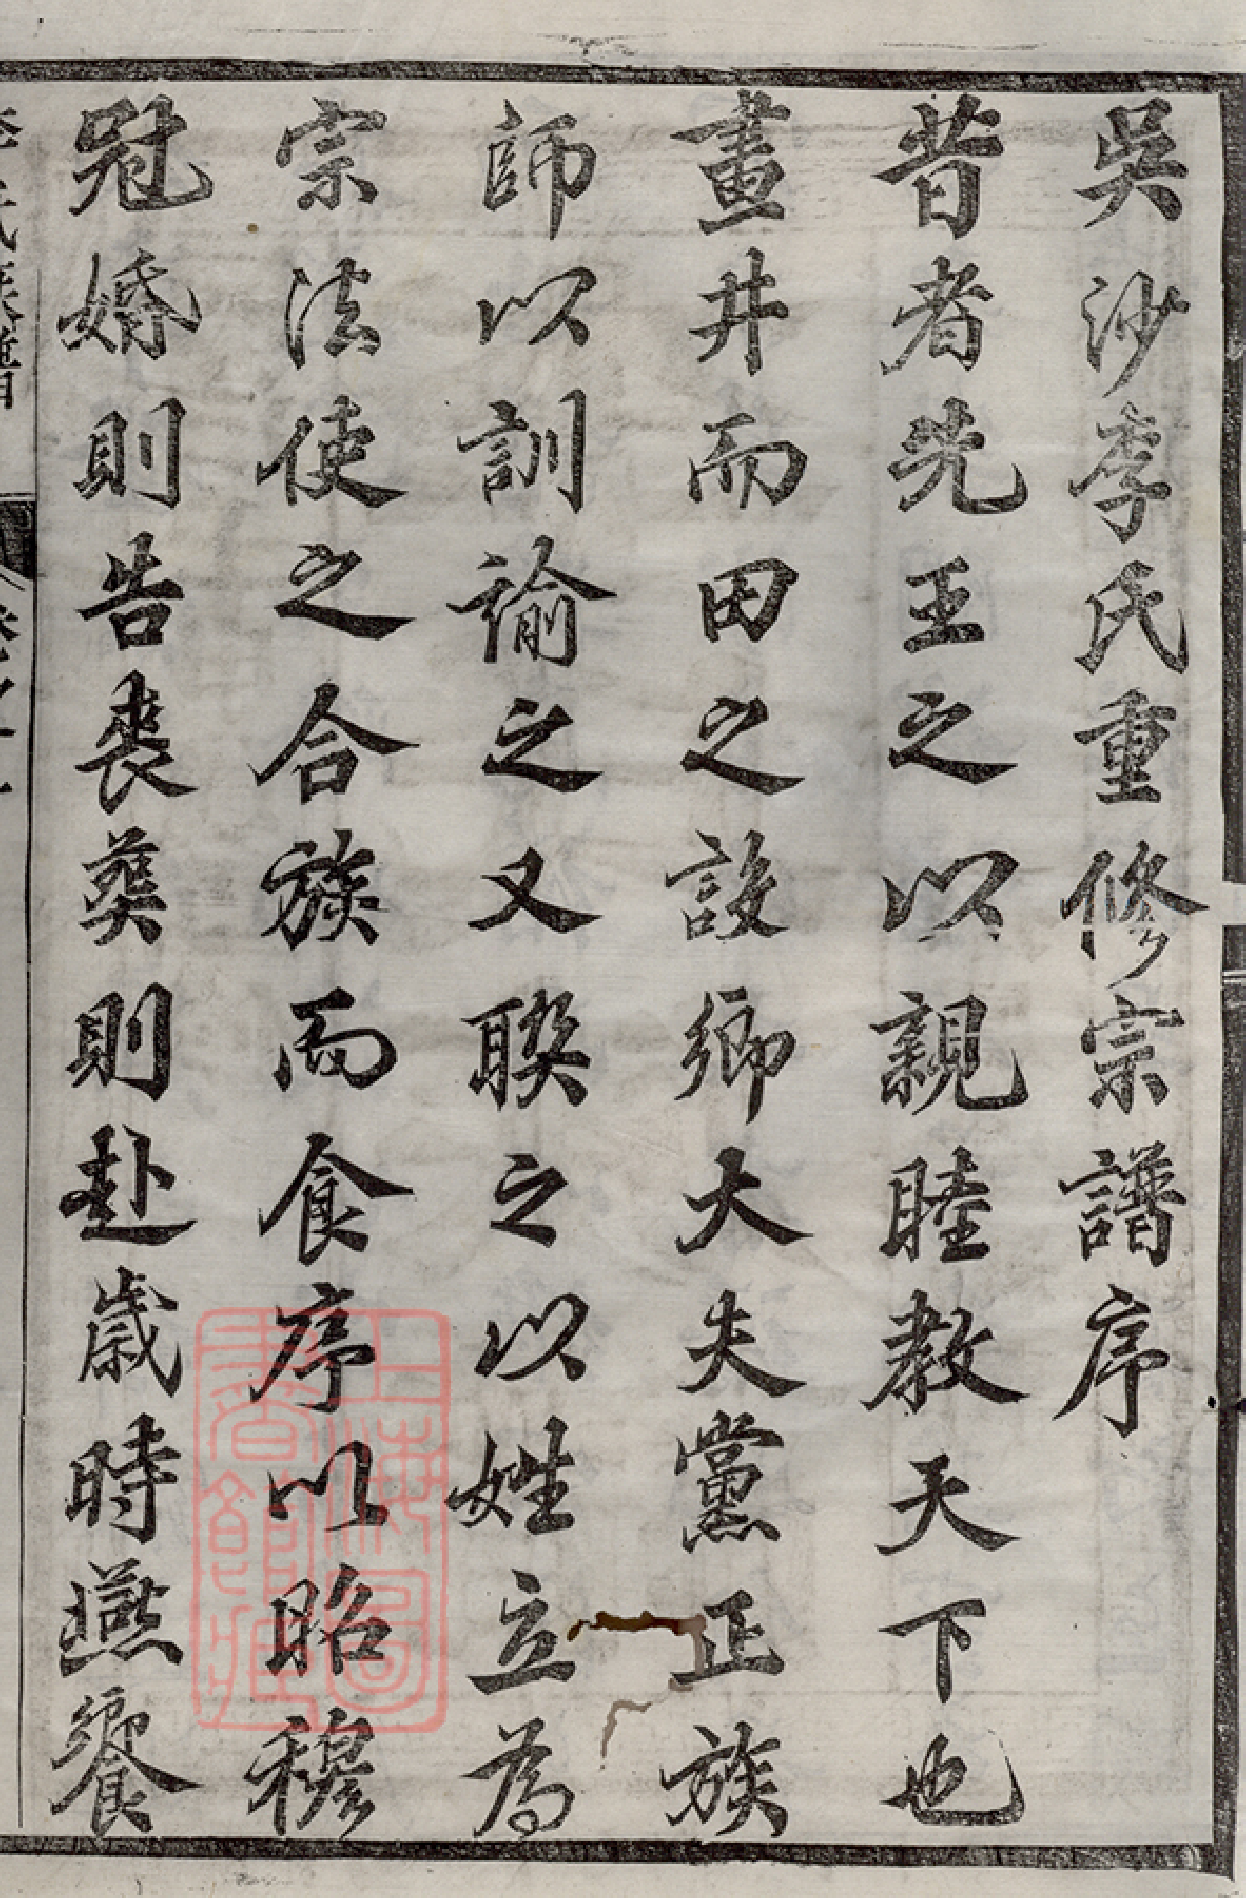 吳沙李氏重修宗譜序
昔者先王之以親睦教天下也
畫井而田之設鄉大夫黨正族
師以訓諭之又聯之以姓立為
宗法使之合族而食序以昭穆
冠婚則告喪葬則赴歲時燕饗
上海圖書館藏